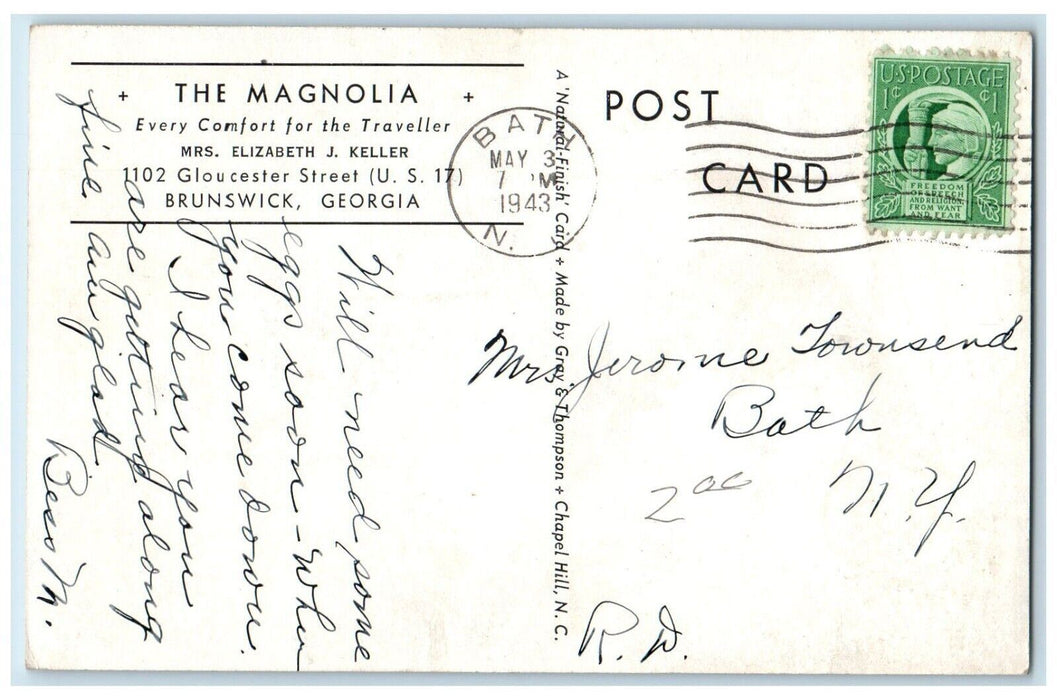 + THE MAGNOLIA +
Every Comfort for the Traveller
MRS. ELIZABETH J. KELLER
1102 Gloucester Street (U. S. 17)
BRUNSWICK, GEORGIA
Will need some
eggs soon - when
you come down.
I hear you
are getting along
fine, am glad
Bess M.
A 'Natural-Finish' Card + Made by Gray & Thompson + Chapel Hill, N. C.
BATH
MAY 3
7 PM
1943
N.
POST
CARD
U·S·POSTAGE
1¢ ¢1
FREEDOM
OF SPEECH
AND RELIGION,
FROM WANT
AND FEAR
Mrs. Jerome Townsend
Bath
N. Y.
2 00
R. D.